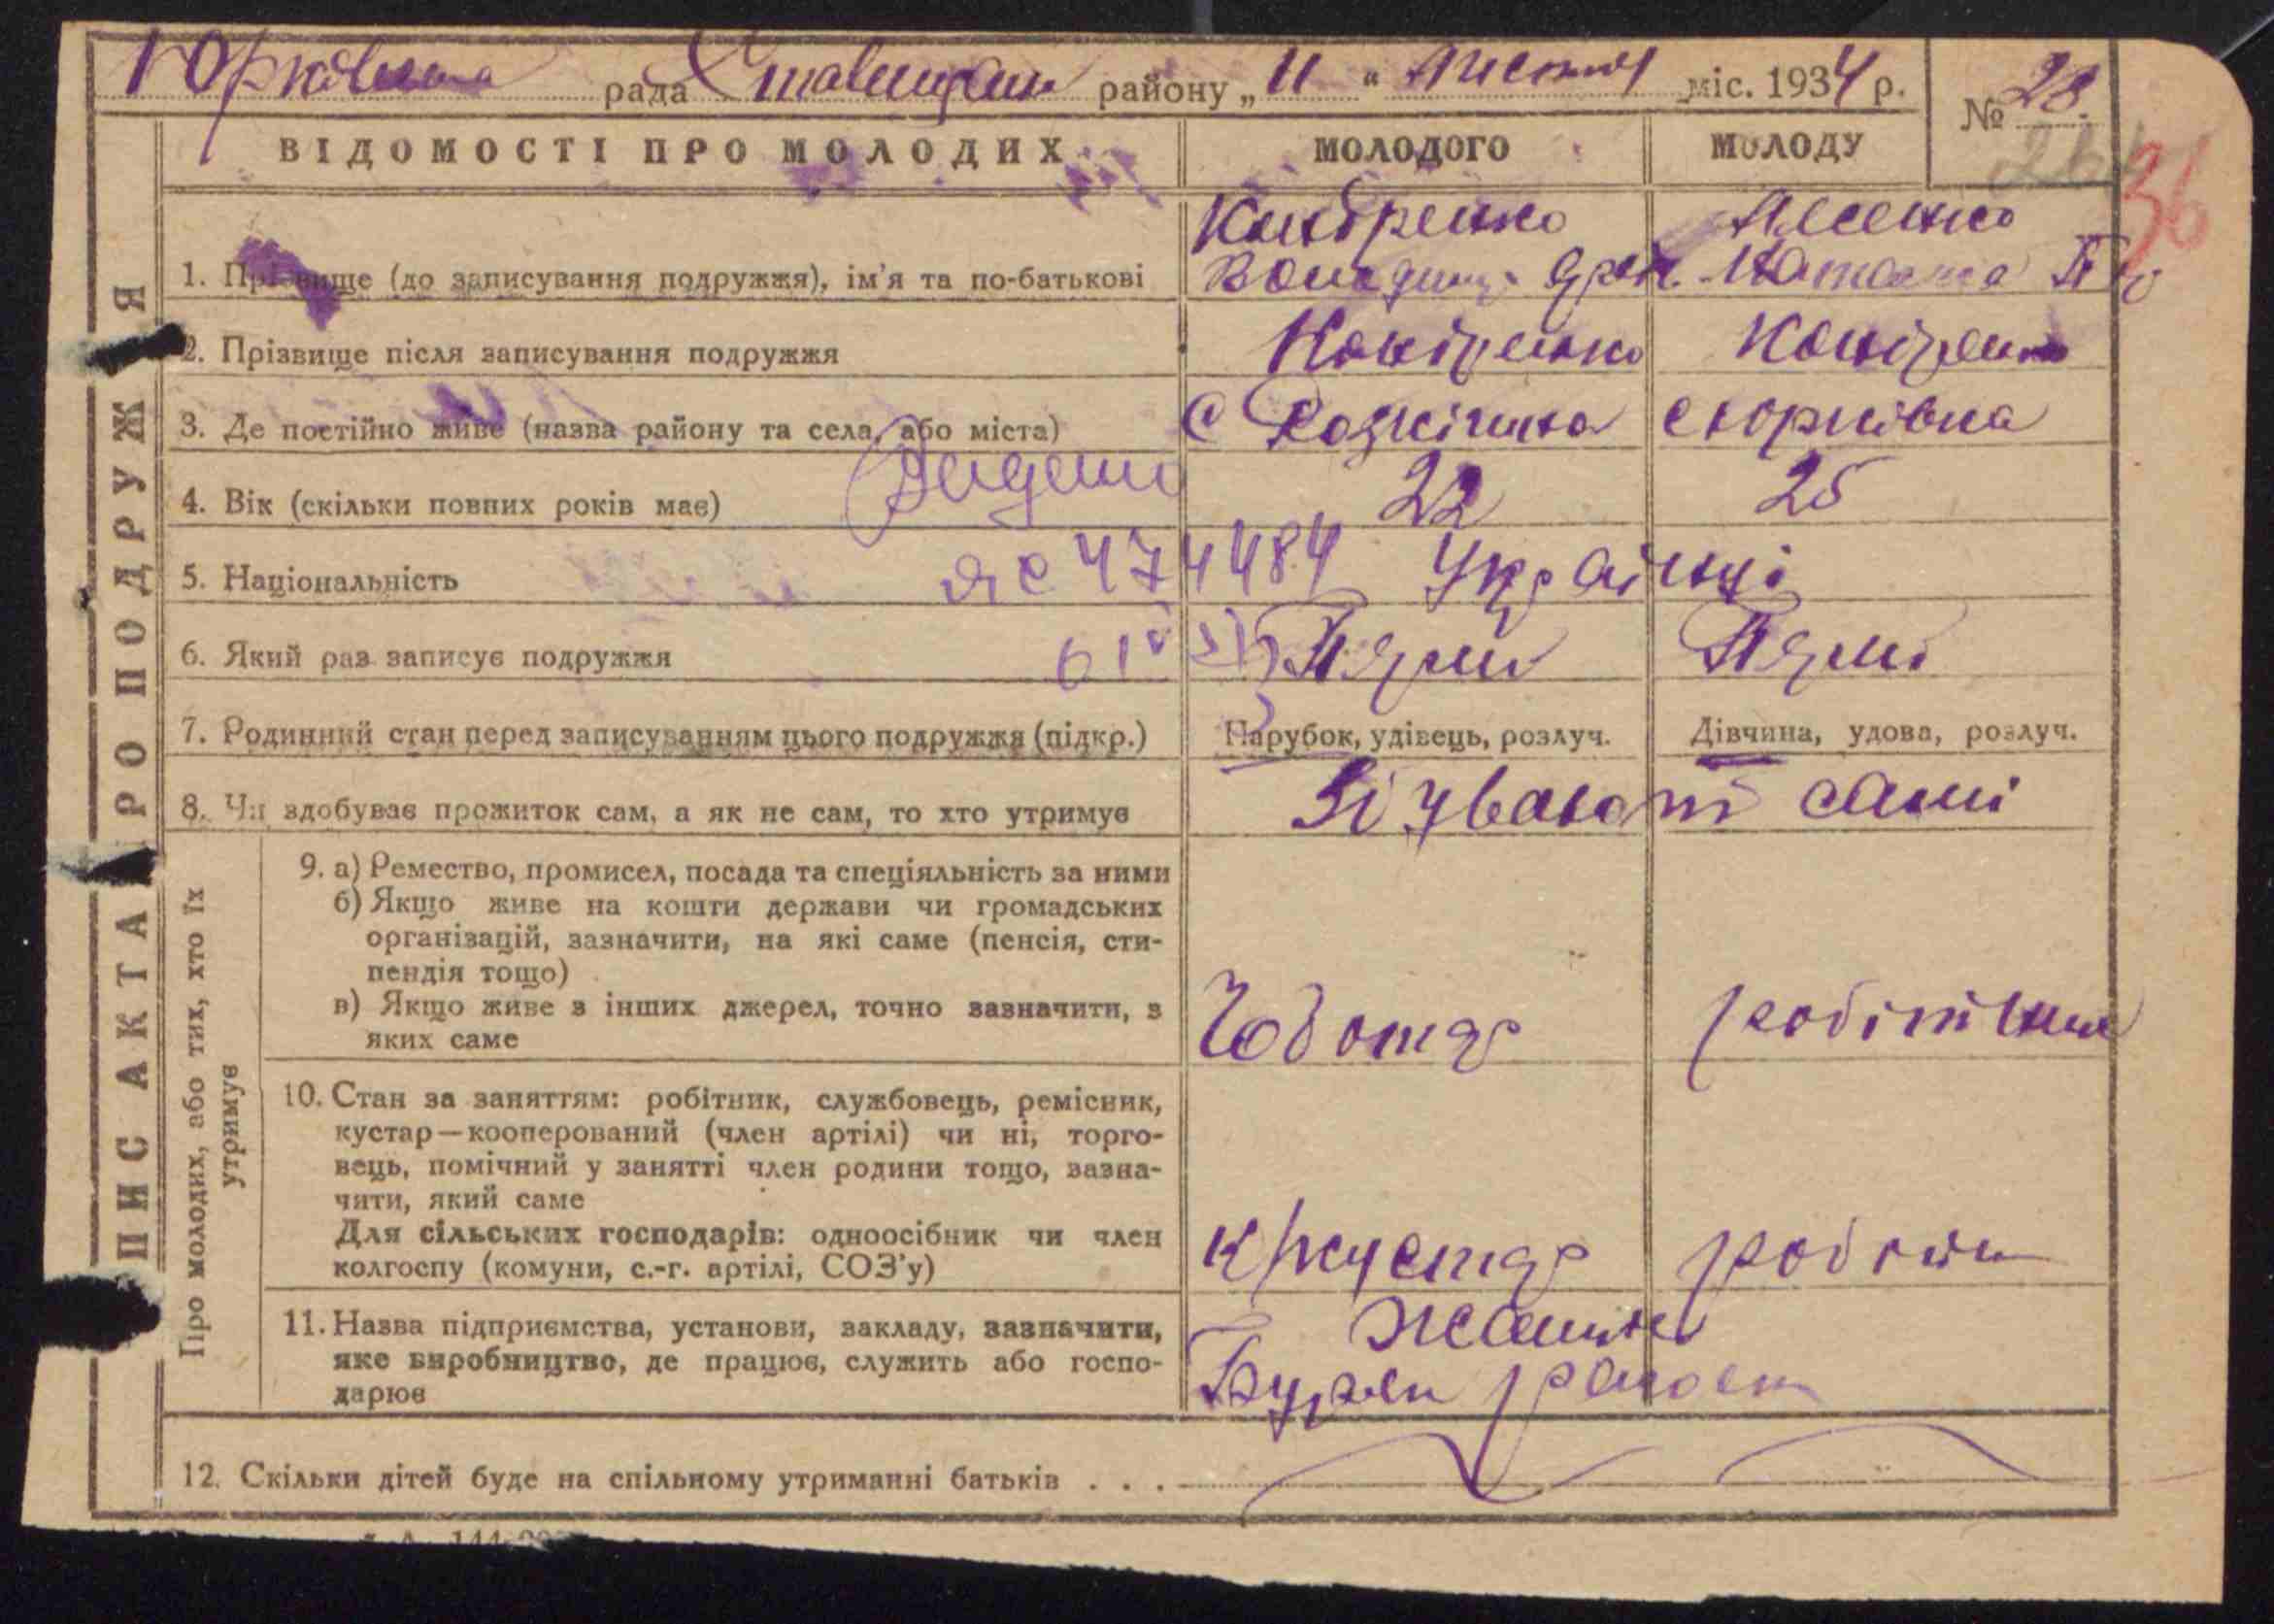 Юрківська рада Ставищан району „11“ жовтня міс. 1934 р.
№ 28.
264
36
ВІДОМОСТІ ПРО МОЛОДИХ МОЛОДОГО МОЛОДУ
ЗАПИС АКТА ПРО ПОДРУЖЖЯ
1. Прізвище (до записування подружжя), ім'я та по-батькові
Наталка
2. Прізвище після записування подружжя
3. Де постійно живе (назва району та села, або міста) с Розкішна с Юрківка
4. Вік (скільки повних років має) 22 25
5. Національність яс 474484 Українці
6. Який раз записує подружжя Перш Перші
7. Родинний стан перед записуванням цього подружжя (підкр.) Парубок, удівець, розлуч. Дівчина, удова, розлуч.
8. Чи здобуває прожиток сам, а як не сам, то хто утримує самі
Про молодих, або тих, хто їх утримує
9. а) Ремество, промисел, посада та спеціяльність за ними
б) Якщо живе на кошти держави чи громадських
організацій, зазначити, на які саме (пенсія, сти-
пендія тощо)
в) Якщо живе з інших джерел, точно зазначити, з
яких саме Чоботар робітниця
10. Стан за заняттям: робітник, службовець, ремісник,
кустар—кооперований (член артілі) чи ні, торго-
вець, помічний у занятті член родини тощо, зазна-
чити, який саме
Для сільських господарів: одноосібник чи член
колгоспу (комуни, с.-г. артілі, СОЗ'у) кустар
11. Назва підприємства, установи, закладу, зазначити,
яке виробництво, де працює, служить або госпо-
дарює
12. Скільки дітей буде на спільному утриманні батьків . . .